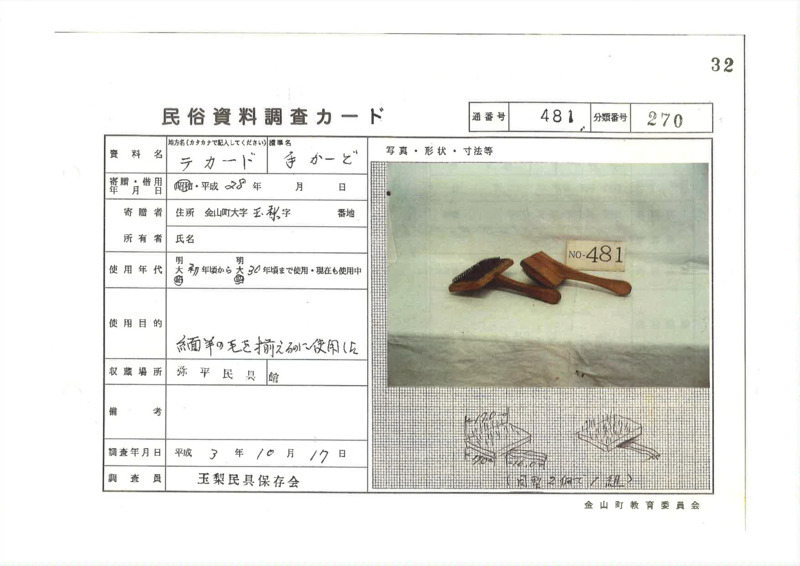 32
民俗資料調査カード
通番号 481
分類番号 270
資料名
地方名(カタカナで記入してください) テカード
標準名 手かーど
寄贈・借用年月日 昭和・平成 28年 月 日
寄贈者 住所 金山町大字 玉梨 字 番地
所有者 氏名
使用年代 明大昭 初年頃から 明大昭 30年頃まで使用・現在も使用中
使用目的 緬羊の毛を揃えるのに使用した
収蔵場所 弥平民具館
備考
調査年月日 平成 3年 10月 17日
調査員 玉梨民具保存会
写真・形状・寸法等
NO-481
(同型2個で1組)
金山町教育委員会